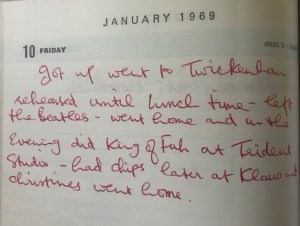 JANUARY 1969
10 FRIDAY
Got up went to Twickenham
rehearsed until lunch time - left
the Beatles - went home and in the
Evening did King of Fuh at Trident
Studio - had chips later at Klaus and
christines went home.